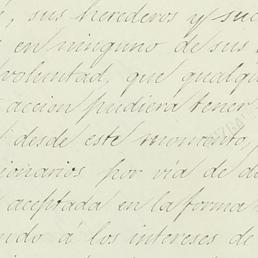 , sus herederos y suc
en ninguno de sus
voluntad, que qualqu
accion pudiera tener
desde este momento,
ionarios por via de do
aceptada en la forma
ndo á los intereses de